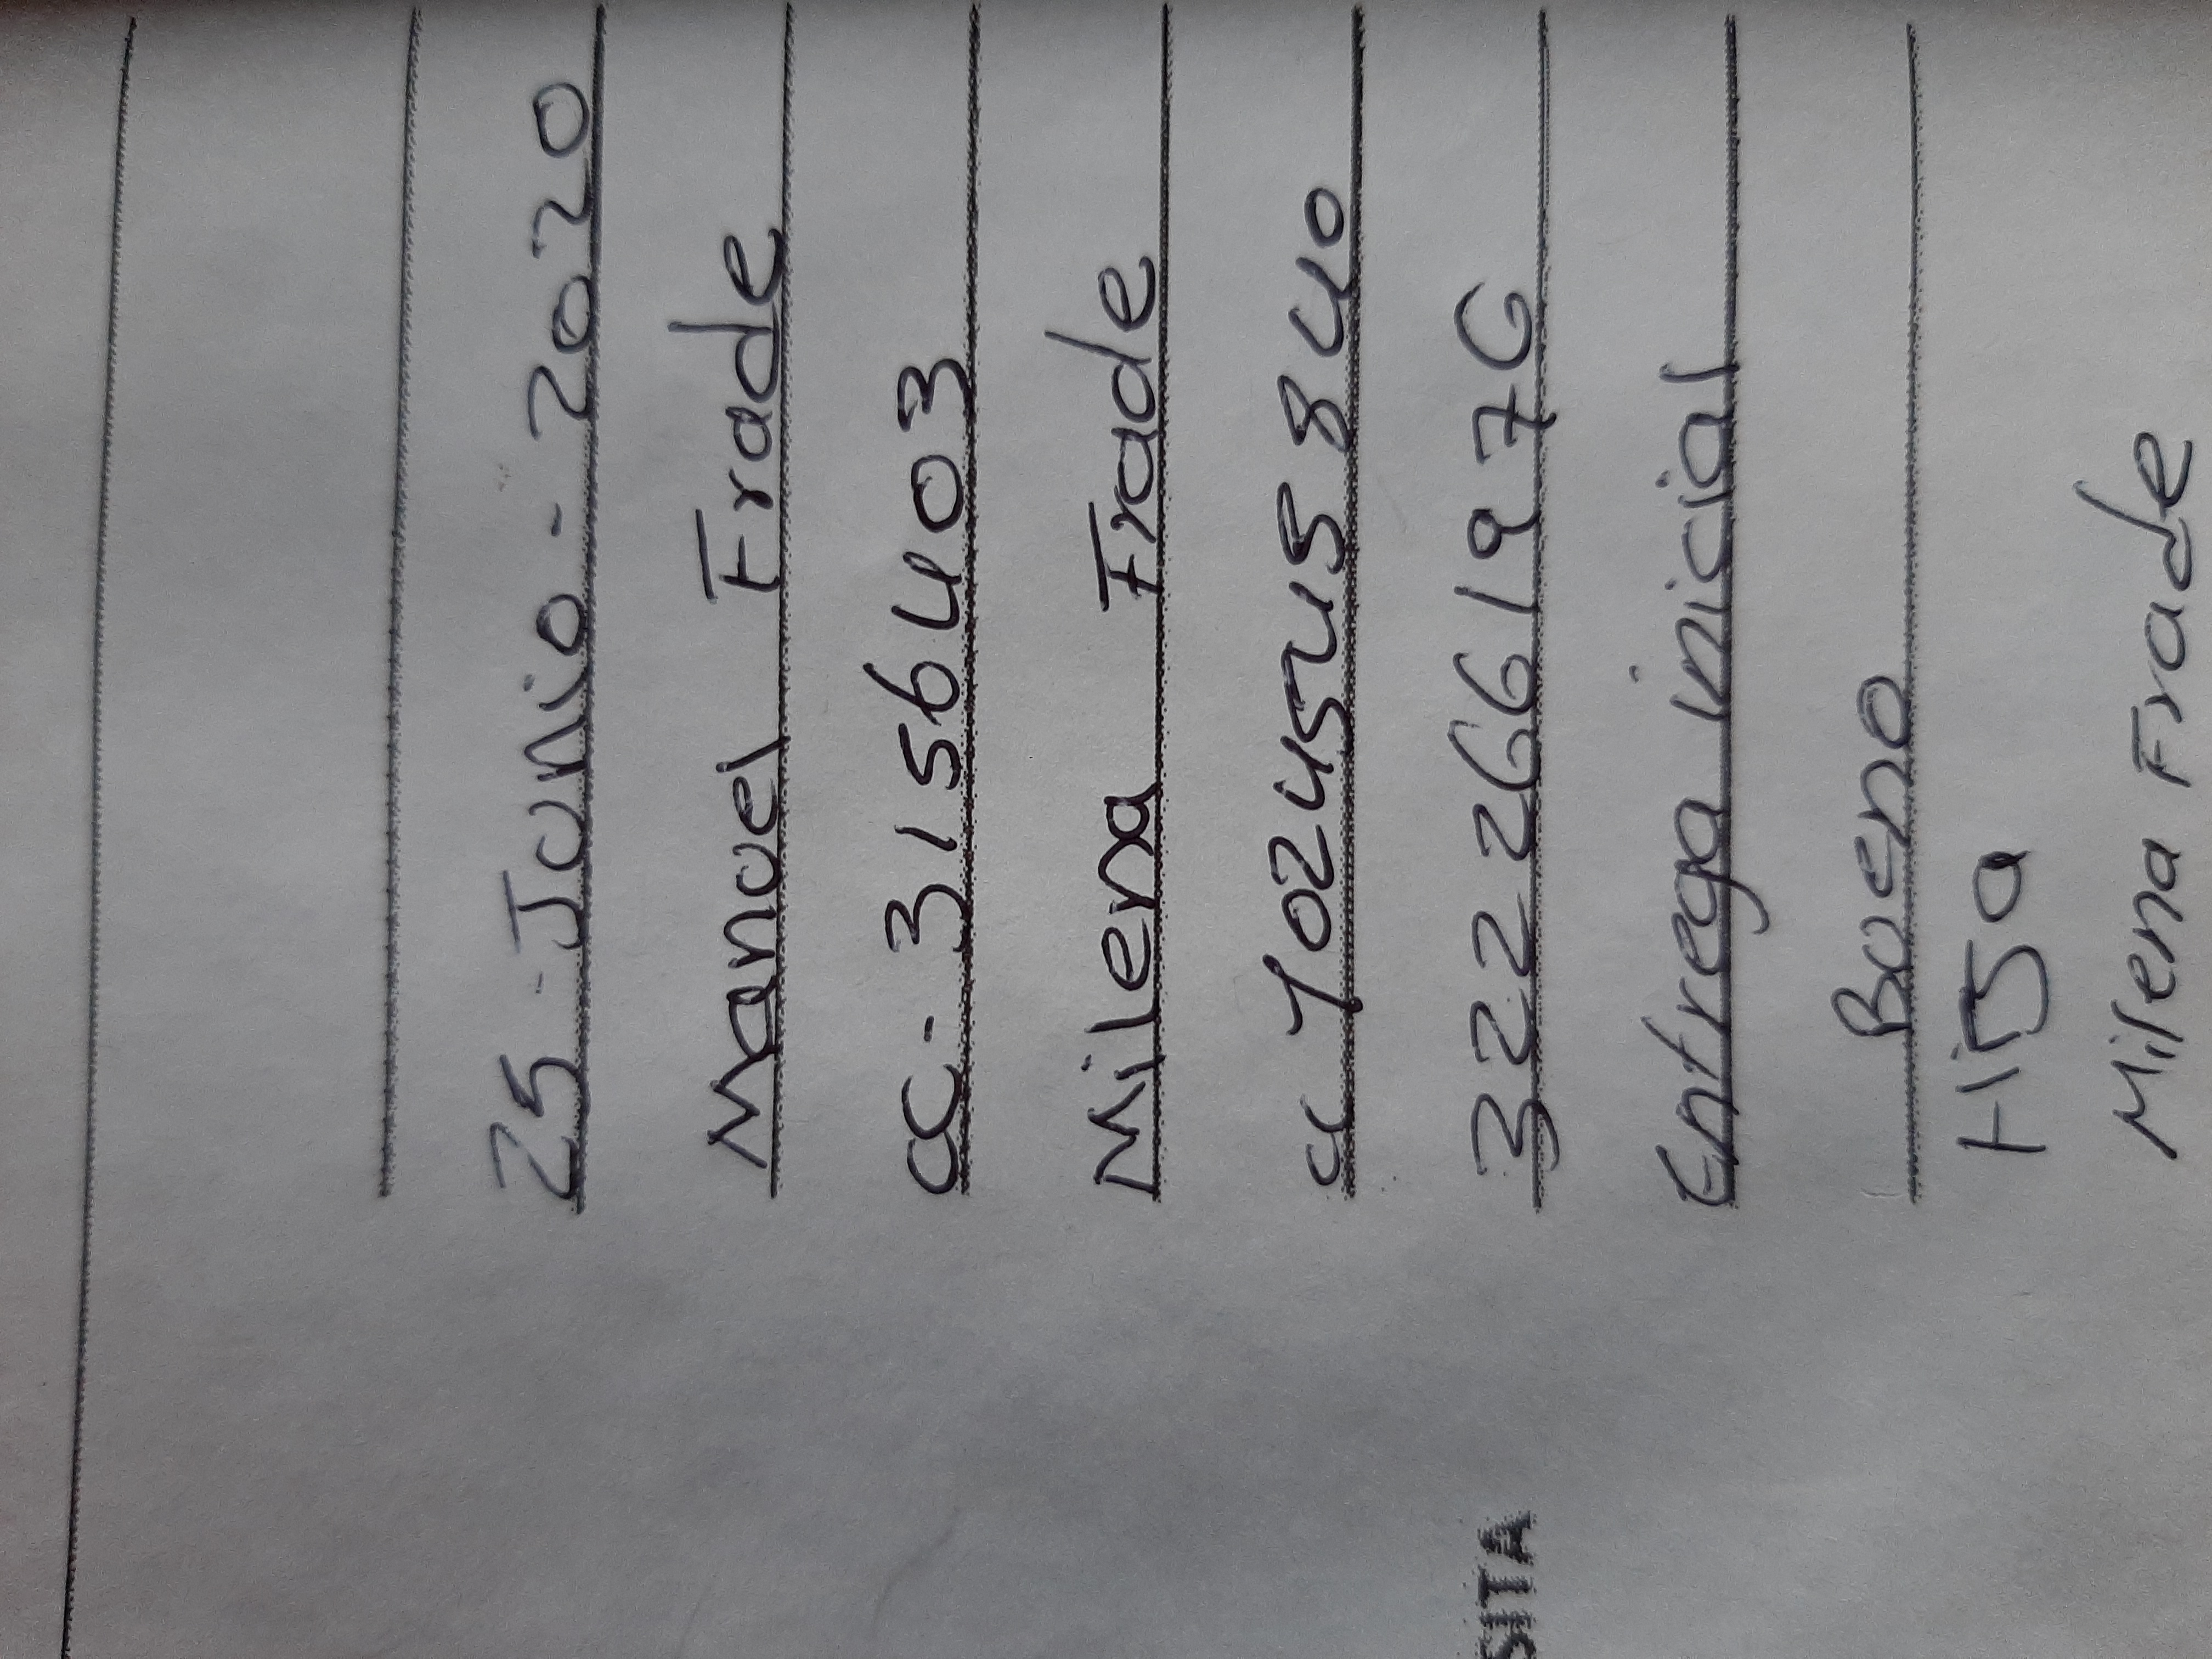 25-Junio-2020
Manuel Frade
CC. 3156403
Milena Frade
CC 1024545840
3222661976
Entrega inicial
SITA
Bueno
Hija
Milena Frade